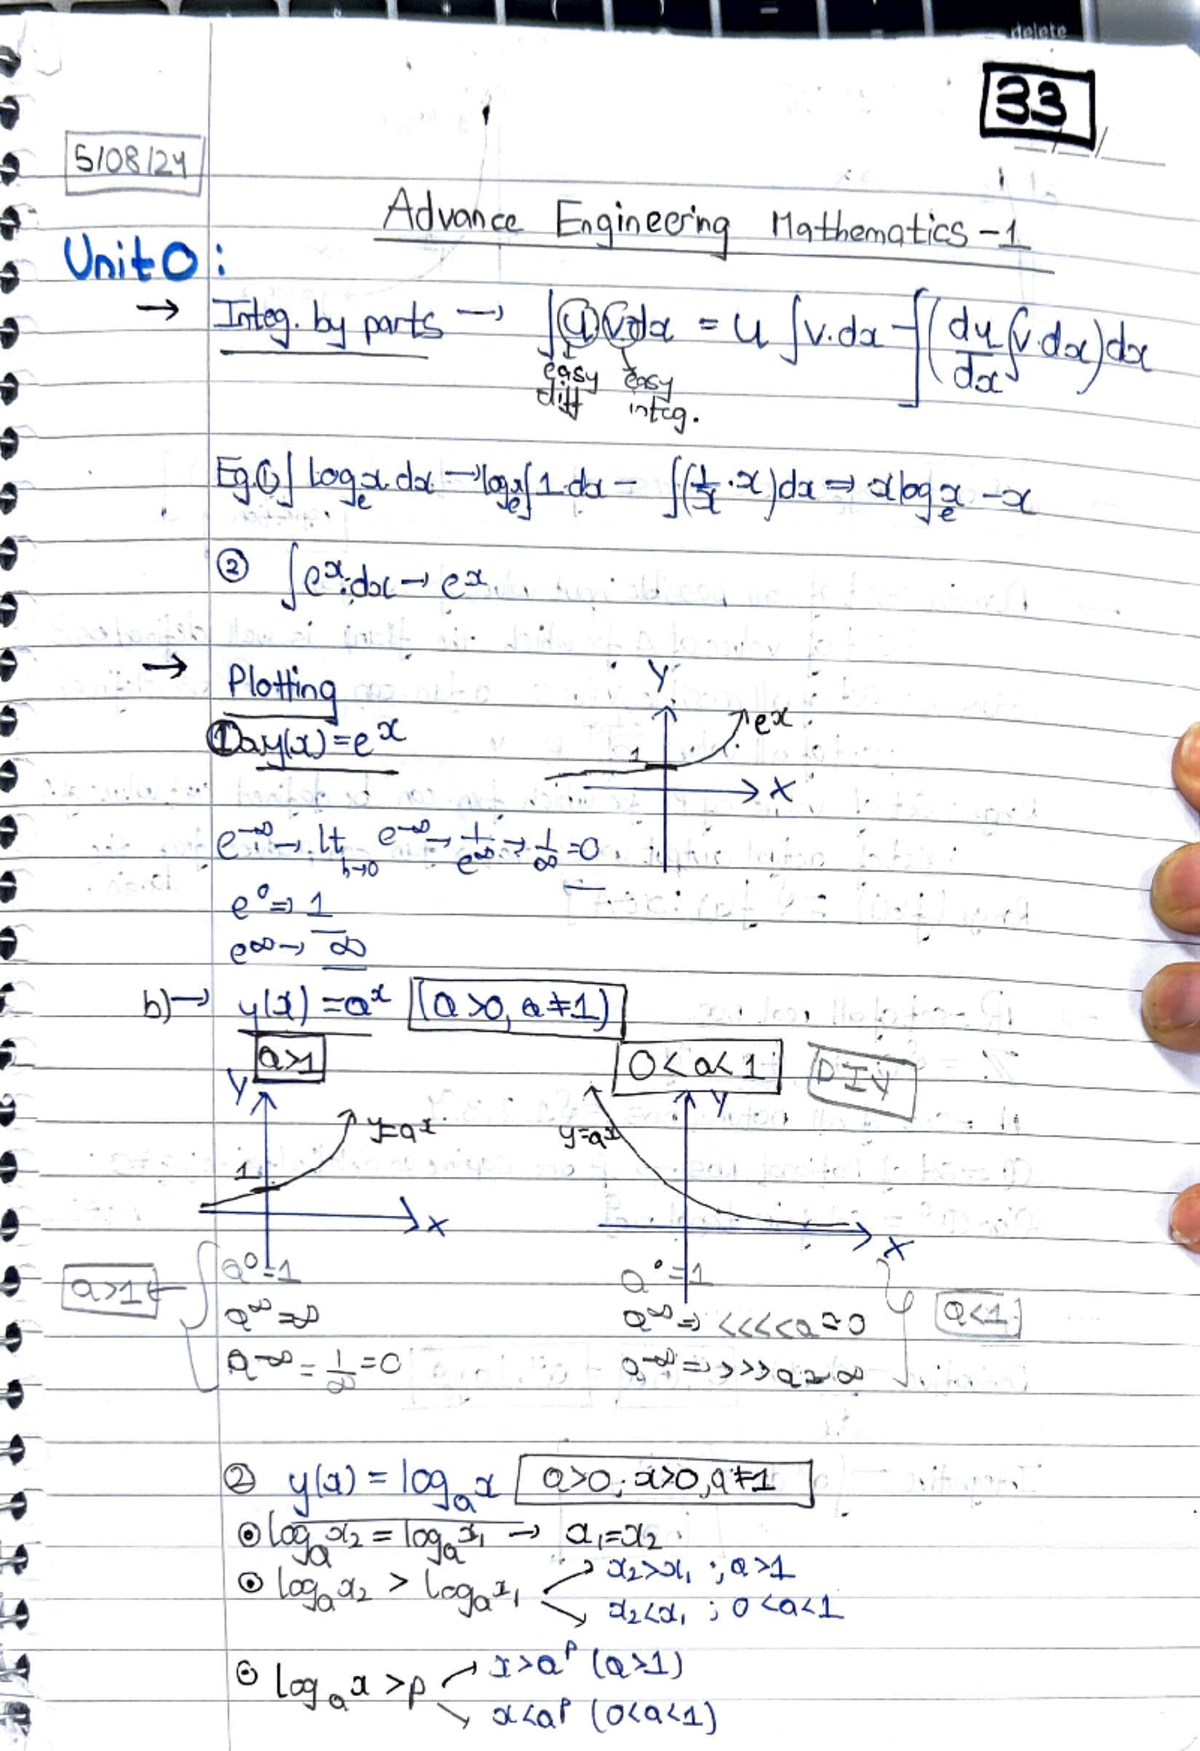 delete
33
5/08/24
Advance Engineering Mathematics-1
Unit 0:
→ Integ. by parts → ∫u v.dx = u ∫v.dx - ∫(du/dx ∫v.dx)dx
easy diff easy integ.
Eg.① ∫logₑx.dx → logₑx∫1.dx - ∫(1/x · x)dx ⇒ xlogₑx - x
② ∫eˣ.dx → eˣ
→ Plotting
① a y(x) = eˣ
Y
1
eˣ
X
e^-∞ → lt h→0 e^-∞ → 1/e^∞ → 1/∞ = 0
e⁰ ⇒ 1
e^∞ → ∞
b) → y(x) = aˣ (a>0, a≠1)
a>1 0<a<1 DIY
Y y=aˣ 1 X
Y y=aˣ X
a>1 ← a⁰=1
a^∞ = ∞
a^-∞ = 1/∞ = 0
a⁰=1
a^∞ ⇒ <<<<a ≈ 0 a<1
a^-∞ ⇒ >>>a ≈ ∞
② y(x) = logₐx a>0; x>0, a≠1
⊙ logₐx₂ = logₐx₁ → x₁=x₂
⊙ logₐx₂ > logₐx₁ x₂>x₁ ; a>1
x₂<x₁ ; 0<a<1
⊙ logₐx > p x>aᵖ (a>1)
x<aᵖ (0<a<1)